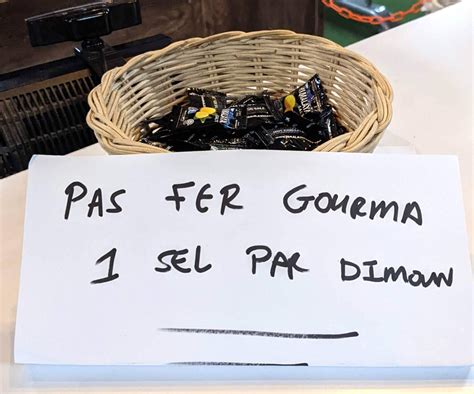 PAS FER GOURMA
1 SEL PAR DIMOUN